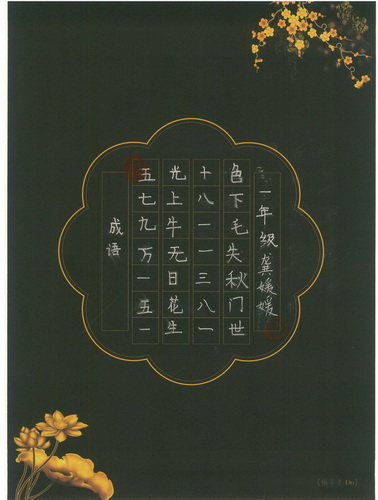 成语
五光十色
七上八下
九牛一毛
万无一失
一日三秋
五花八门
一生一世
一年级龚媛媛